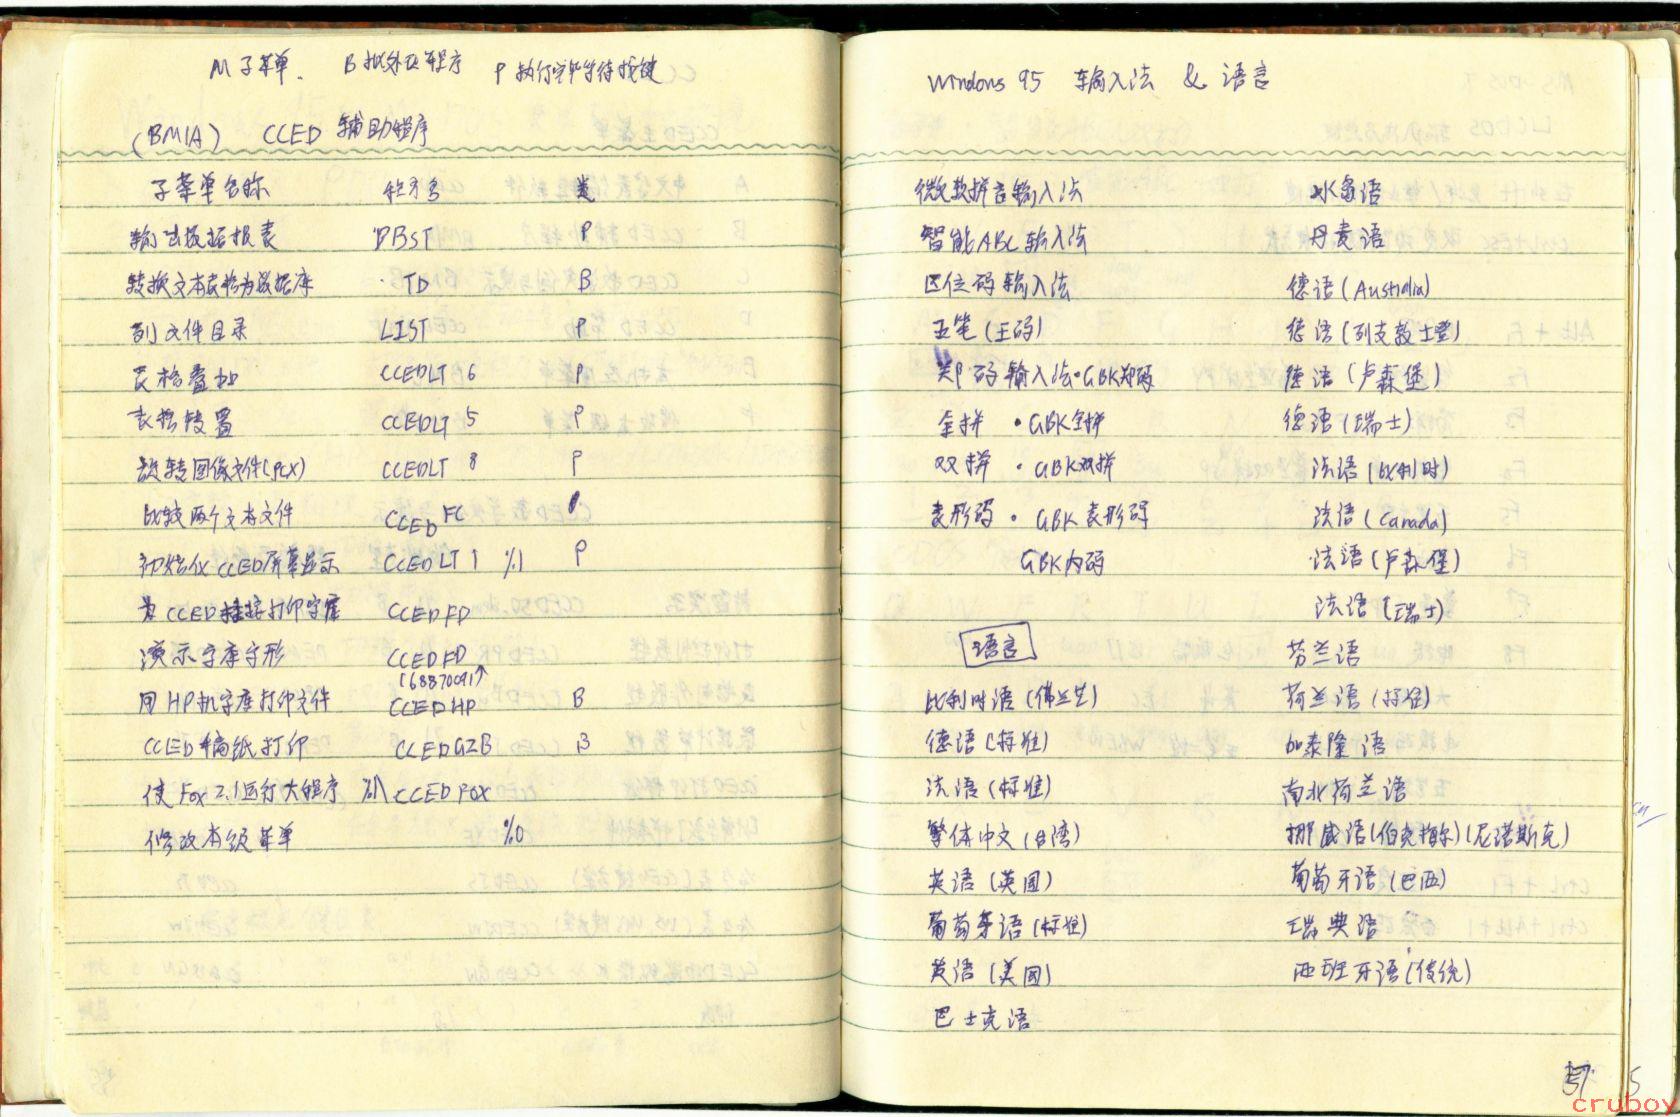 M子菜单. B 拟外卫程序 P 执行完毕等待按键
(BMIA) CCED 辅助程序
子菜单名称 程序名 类
输出数据报表 DBST P
转换文本表格为数据库 ·TD B
列文件目录 LIST P
表格叠加 CCEDLT 6 P
表格转置 CCEDLT 5 P
旋转图像文件(PCX) CCEDLT 8 P
比较两个文本文件 CCEDFC
初始化CCED屏幕显示 CCEDLT 1 %1 P
为CCED挂接打印字库 CCEDFD
演示字库字形 CCEDFD
16887009↑
用HP机字库打印文件 CCEDHP B
CCED稿纸打印 CCEDGZB B
使Fox 2.1运行大程序 %1 CCEDFOX
修改本级菜单 %0
Windows 95 输入法 & 语言
微软拼音输入法 冰岛语
智能ABC输入法 丹麦语
区位码输入法 德语(Australia)
五笔(王码) 德语(列支敦士登)
郑码输入法·GBK郑码 德语(卢森堡)
全拼 ·GBK全拼 德语(瑞士)
双拼 ·GBK双拼 法语(比利时)
表形码·GBK表形码 法语(Canada)
GBK内码 法语(卢森堡)
法语(瑞士)
语言 芬兰语
比利时语(佛兰芒) 荷兰语(标准)
德语(标准) 加泰隆语
法语(标准) 南北荷兰语
繁体中文(台湾) 挪威语(伯克梅尔)(尼诺斯克)
英语(英国) 葡萄牙语(巴西)
葡萄牙语(标准) 瑞典语
英语(美国) 西班牙语(传统)
巴士克语
57
5
cruboy